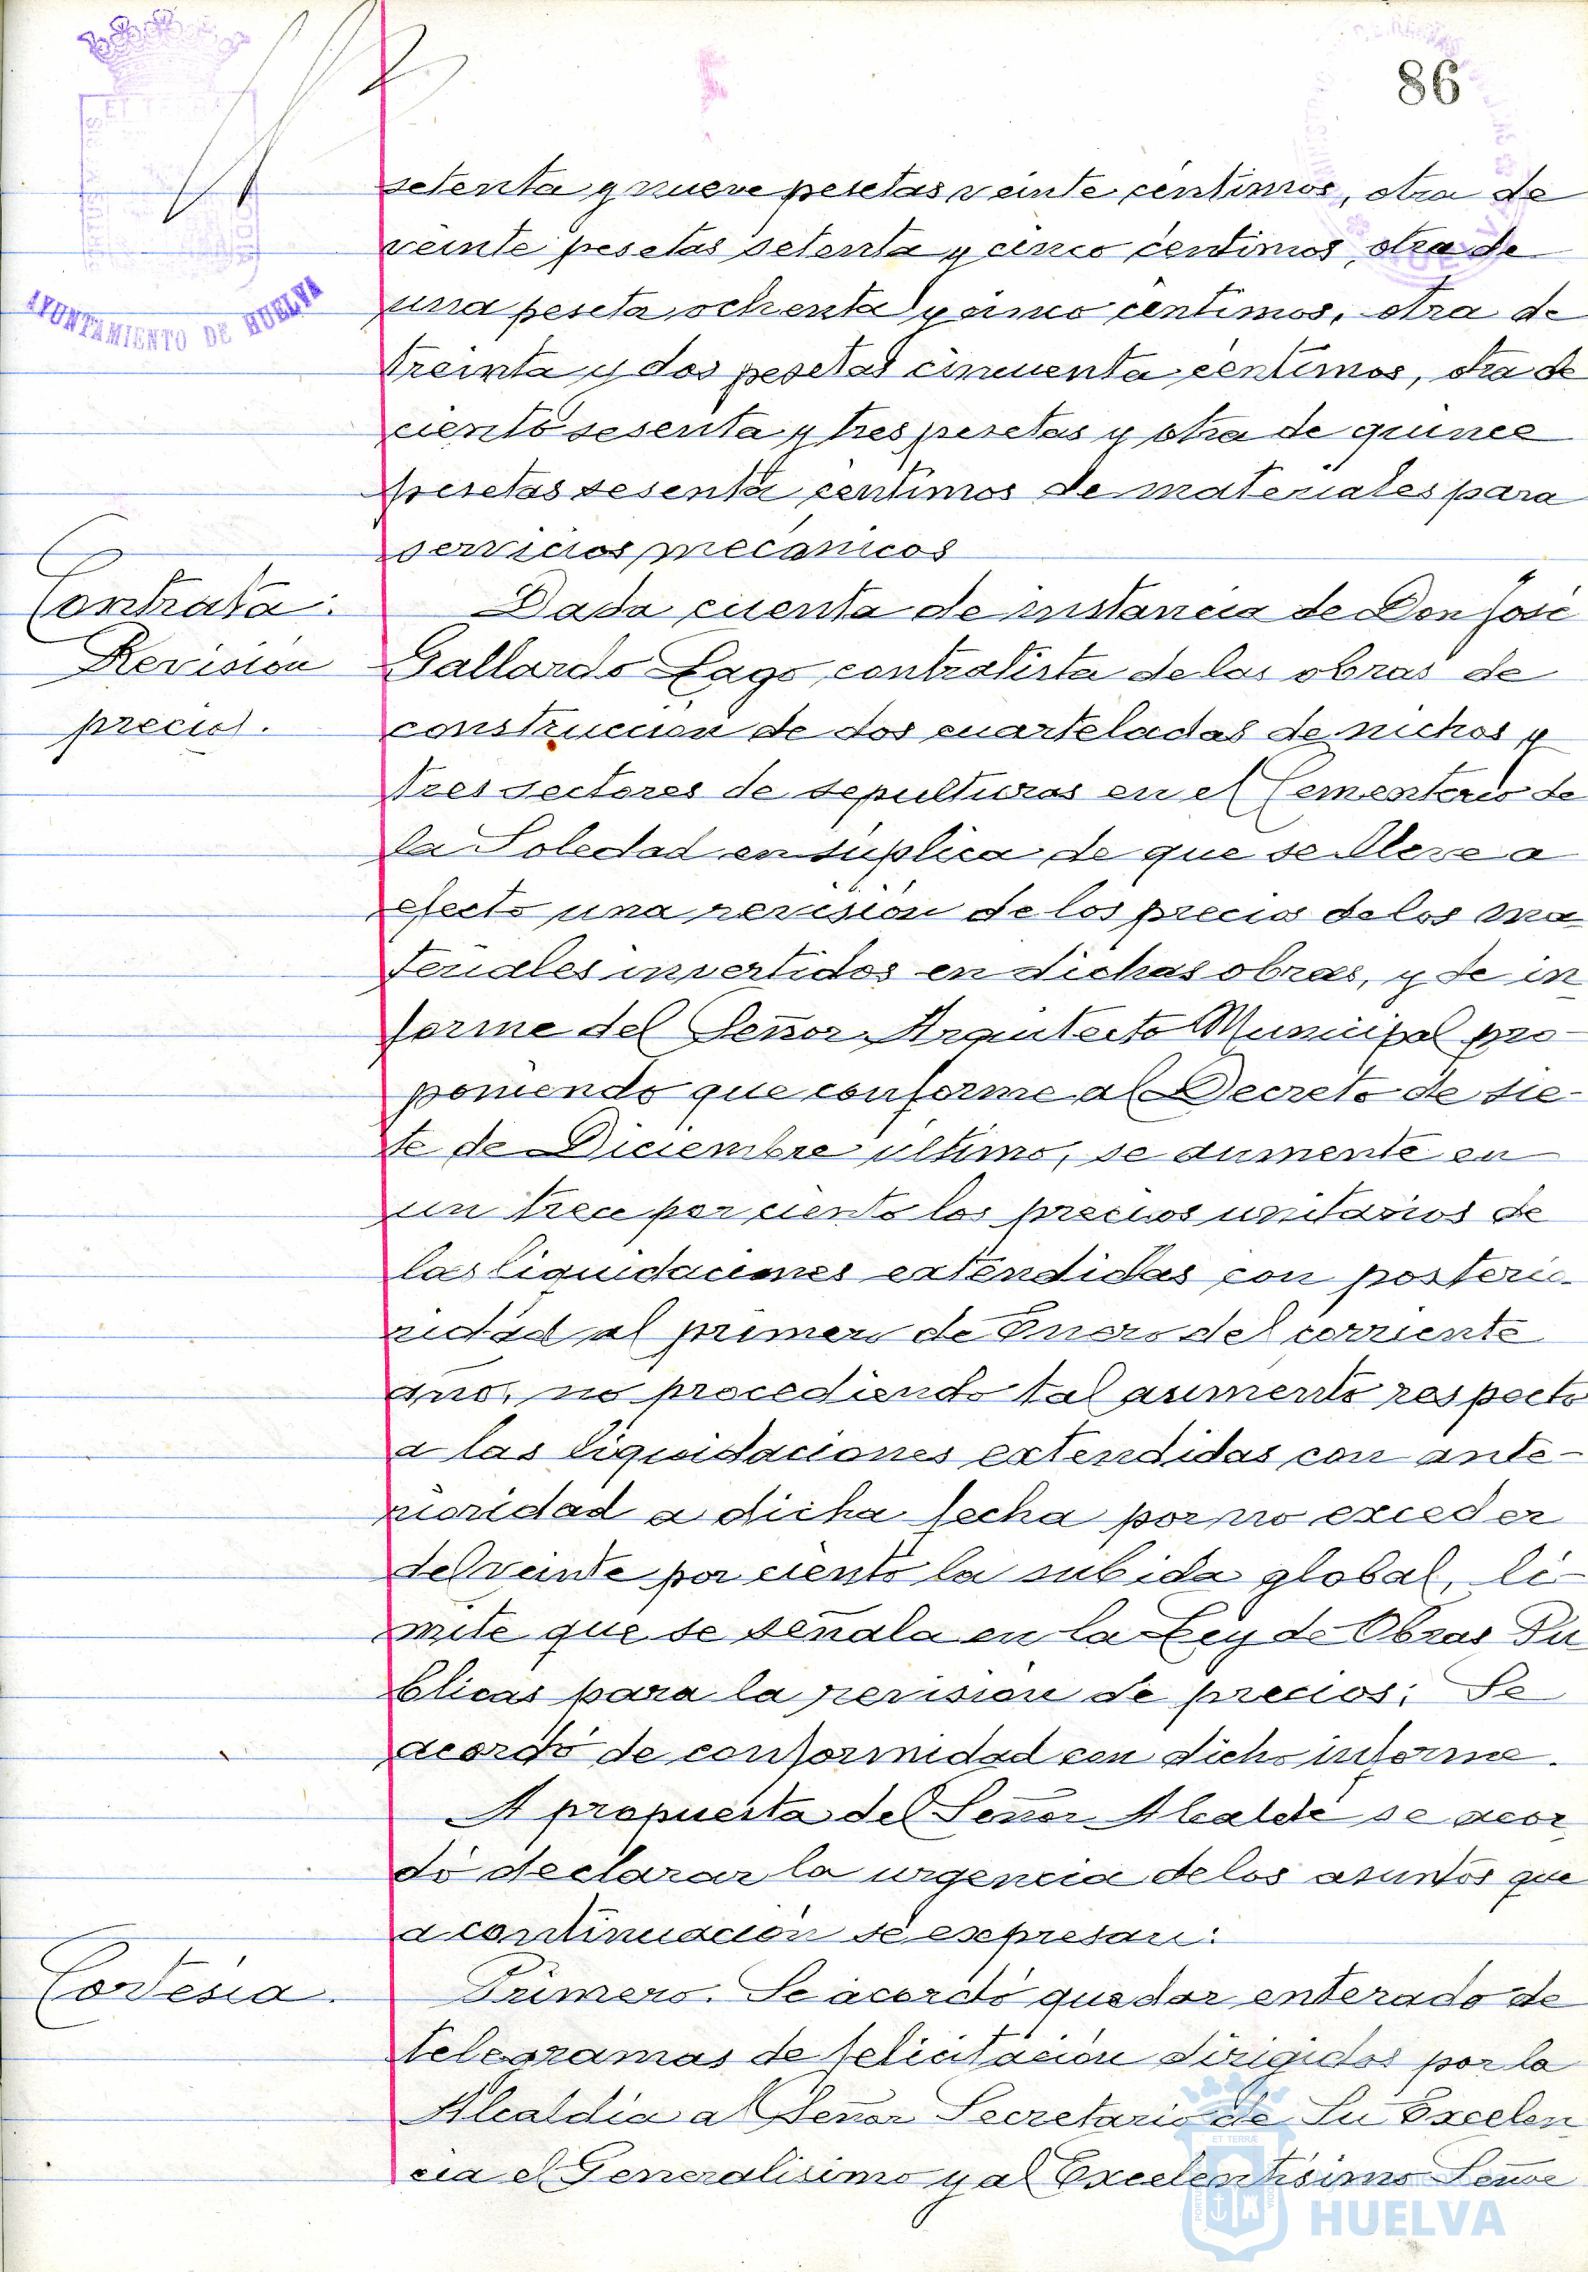 86
AYUNTAMIENTO DE HUELVA
setenta y nueve pesetas veinte centimos, otra de
veinte pesetas setenta y cinco centimos, otra de
una peseta ochenta y cinco centimos, otra de
treinta y dos pesetas cincuenta centimos, otra de
ciento sesenta y tres pesetas y otra de quince
pesetas sesenta centimos de materiales para
servicios mecánicos
Contrata:
Revisión
precios.
Dada cuenta de instancia de Don José
Gallardo Lago, contratista de las obras de
construcción de dos cuarteladas de nichos y
tres sectores de sepulturas en el Cementerio de
la Soledad en súplica de que se lleve a
efecto una revisión de los precios de los ma
teriales invertidos en dichas obras, y de in
forme del Señor Arquitecto Municipal pro-
poniendo que conforme al Decreto de sie-
te de Diciembre último, se aumente en
un trece por ciento los precios unitarios de
las liquidaciones extendidas con posterio-
ridad al primero de Enero del corriente
año, no procediendo tal aumento respecto
a las liquidaciones extendidas con ante-
rioridad a dicha fecha por no exceder
del veinte por ciento la subida global, li-
mite que se señala en la Ley de Obras Pú
blicas para la revisión de precios; Se
acordó de conformidad con dicho informe.
A propuesta del Señor Alcalde se acor
dó declarar la urgencia de los asuntos que
a continuación se expresan:
Cortesia.
Primero. Se acordó quedar enterado de
telegramas de felicitación dirigidos por la
Alcaldia al Señor Secretario de Su Excelen
cia el Generalisimo y al Excelentisimo Señor
ET TERRÆ
HUELVA